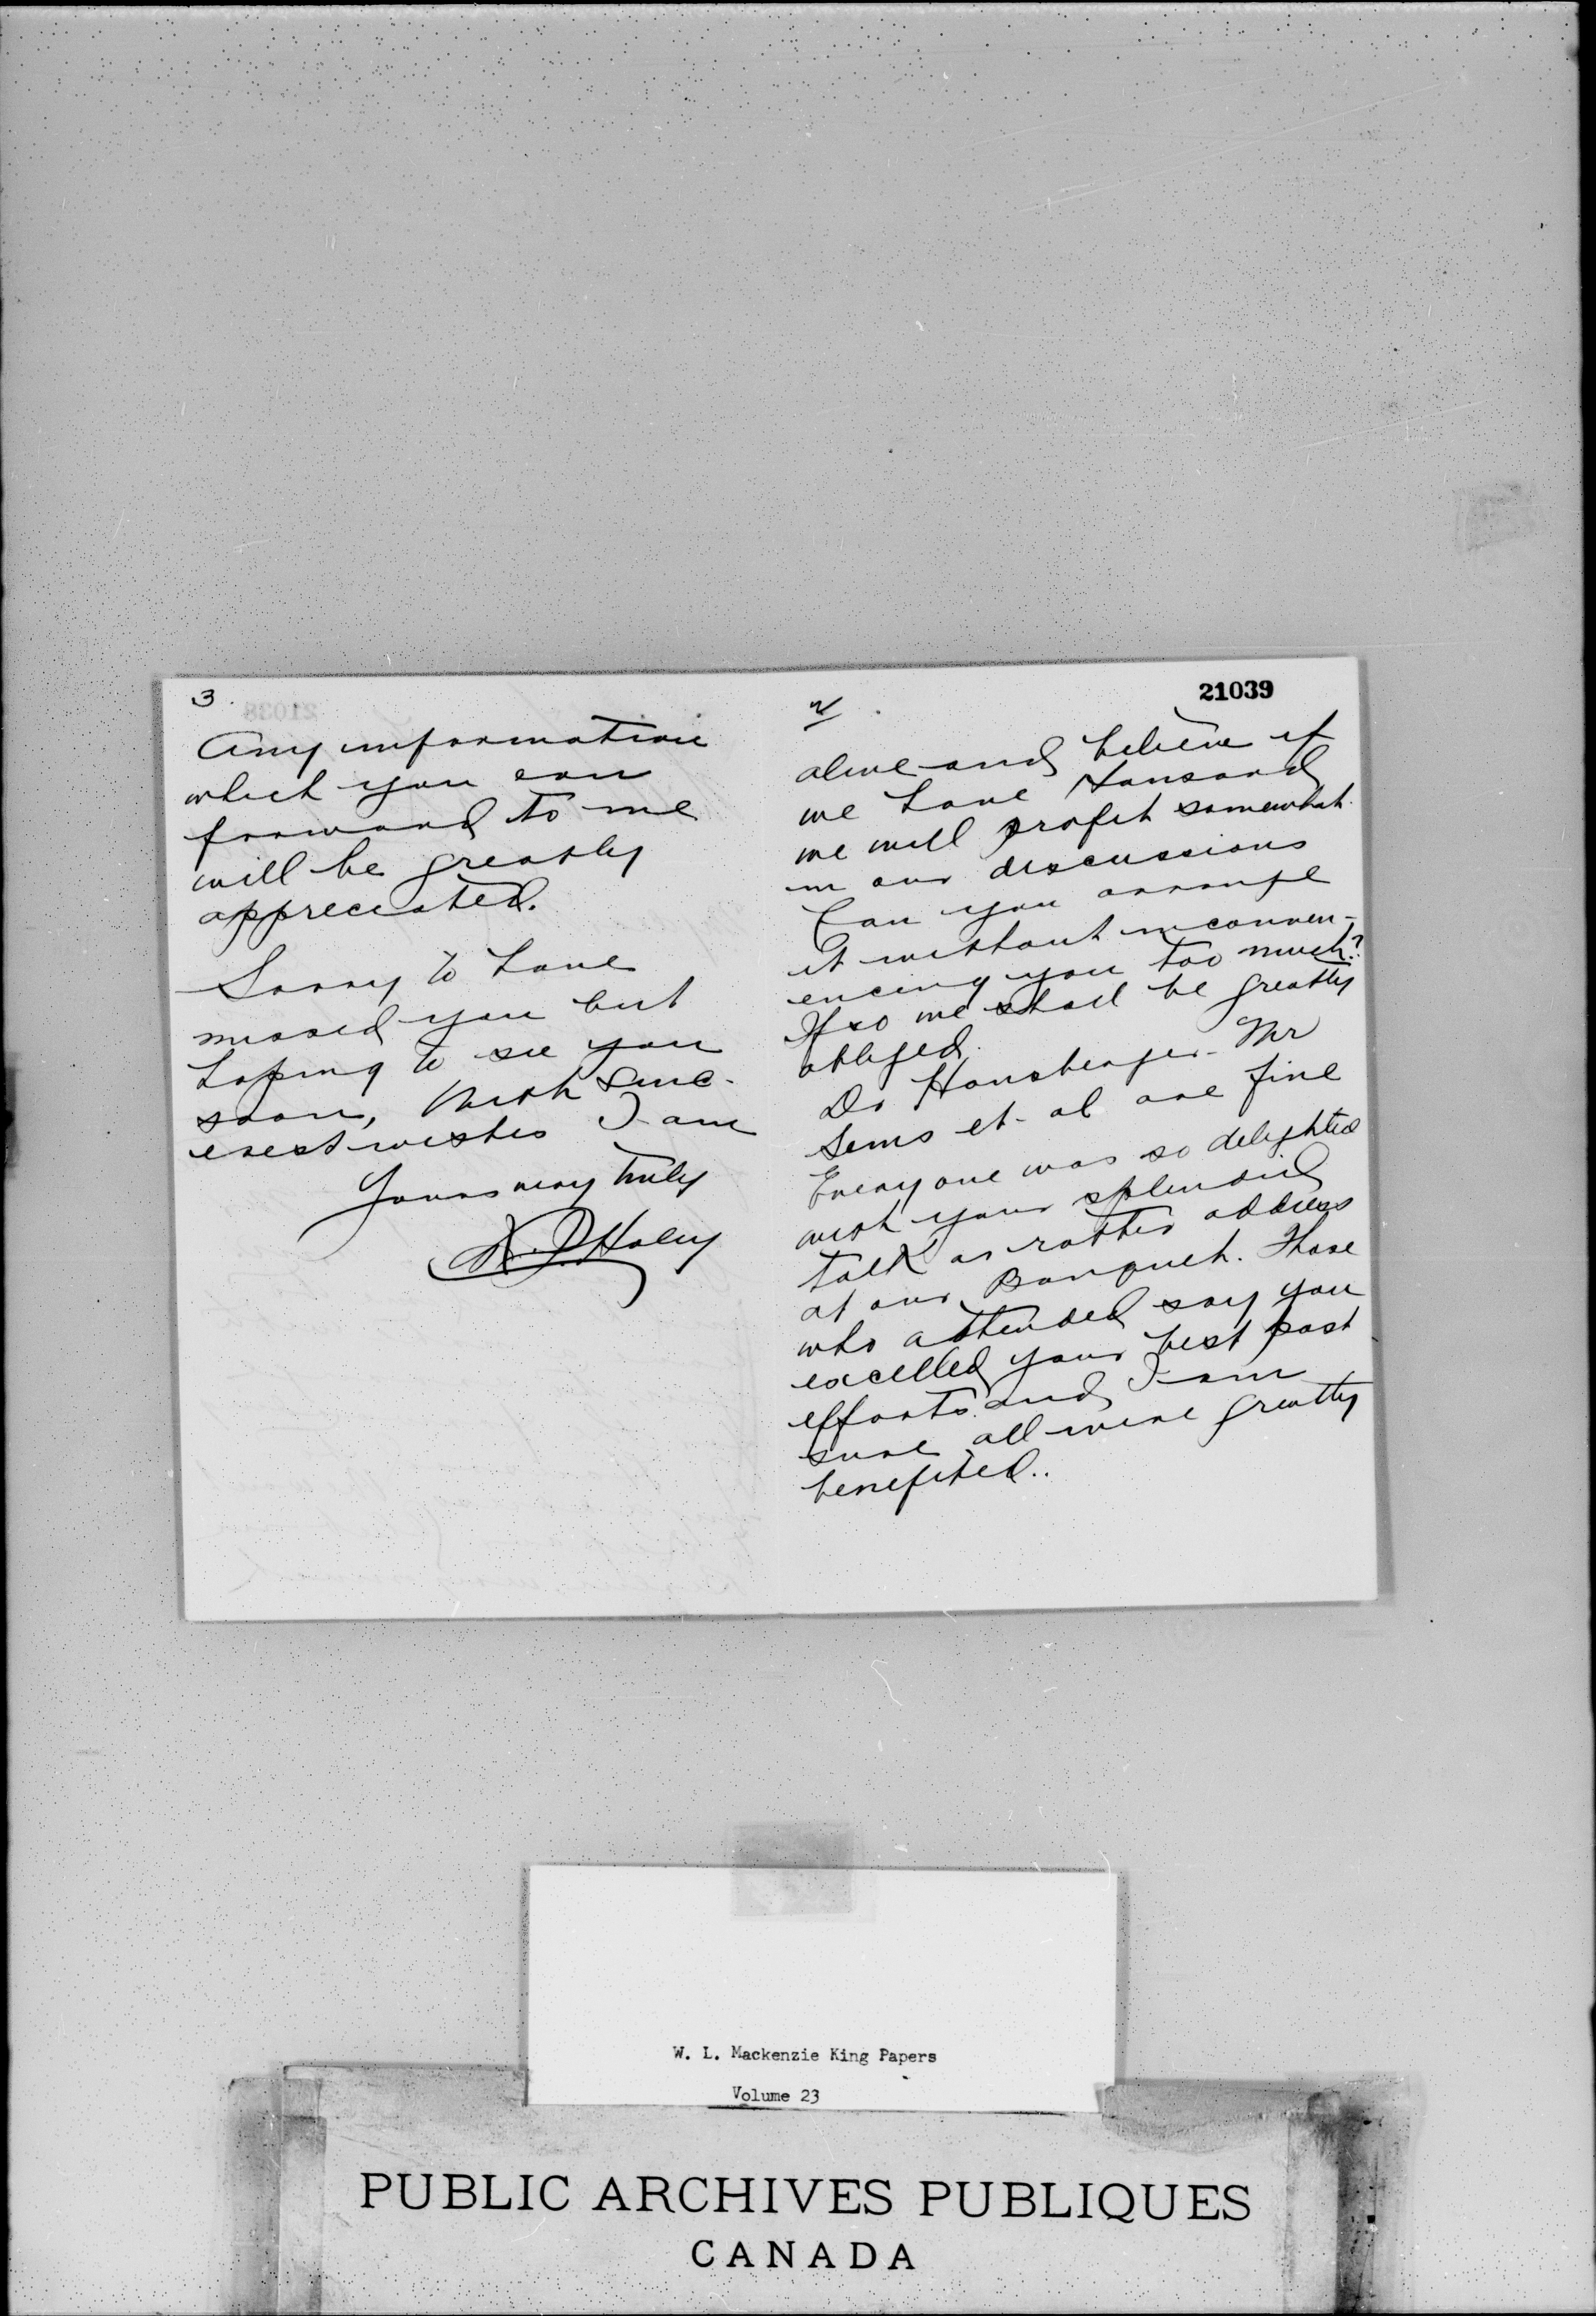 21039
2/.
alive and believe if
we have Hansard
we will profit somewhat
in our discussions
Can you arrange
it without inconven-
encing you too much?
If so we shall be greatly
obliged.
Dr Honsberger - Mr
Sems et - al are fine
Everyone was so delighted
with your splendid
talk or rather address
at our Banquet. Those
who attended say you
excelled your best past
efforts. and I am
sure all were greatly
benefited..
3.
Any information
which you can
forward to me
will be greatly
appreciated.
Sorry to have
missed you but
hoping to see you
soon, With sinc-
erest wishes I am
Yours very truly
Haley
W. L. Mackenzie King Papers
Volume 23
PUBLIC ARCHIVES PUBLIQUES
CANADA